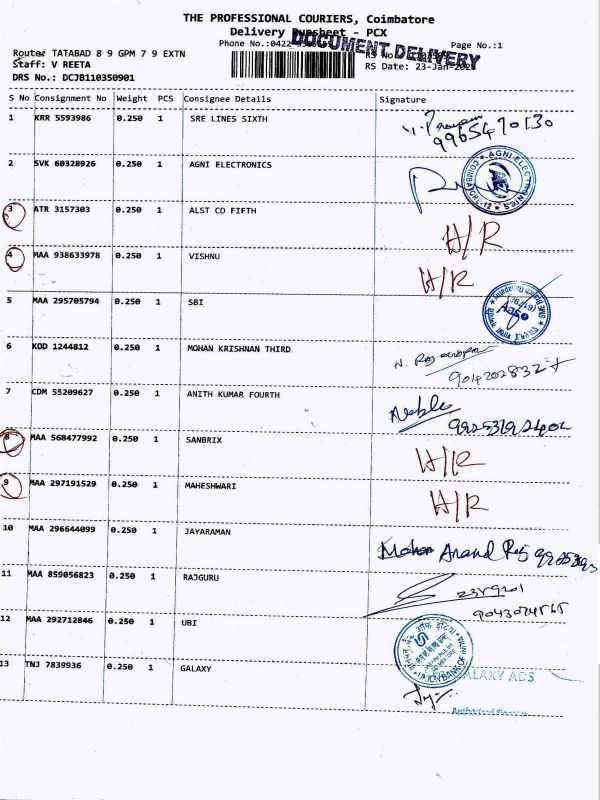 THE PROFESSIONAL COURIERS, Coimbatore
Delivery Runsheet - PCX
DOCUMENT DELIVERY
Phone No.:0422
Page No.:1
Route: TATABAD 8 9 GPM 7 9 EXTN
RS No
Staff: V REETA
RS Date: 23-Jan-
DRS No.: DCJB110350901
S No Consignment No Weight PCS Consignee Details Signature
1 KRR 5593986 0.250 1 SRE LINES SIXTH
2 SVK 60328926 0.250 1 AGNI ELECTRONICS
AGNI ELECTRONICS
3 ATR 3157303 0.250 1 ALST CO FIFTH H/R
4 MAA 938633978 0.250 1 VISHNU H/R
5 MAA 295705794 0.250 1 SBI
6 KOD 1244812 0.250 1 MOHAN KRISHNAN THIRD
7 CDM 55209627 0.250 1 ANITH KUMAR FOURTH
8 MAA 568477992 0.250 1 SANBRIX H/R
9 MAA 297191529 0.250 1 MAHESHWARI H/R
10 MAA 296644099 0.250 1 JAYARAMAN Mohan Anand Raj
11 MAA 859056823 0.250 1 RAJGURU
12 MAA 292712846 0.250 1 UBI
13 TNJ 7839936 0.250 1 GALAXY
GALAXY ADS